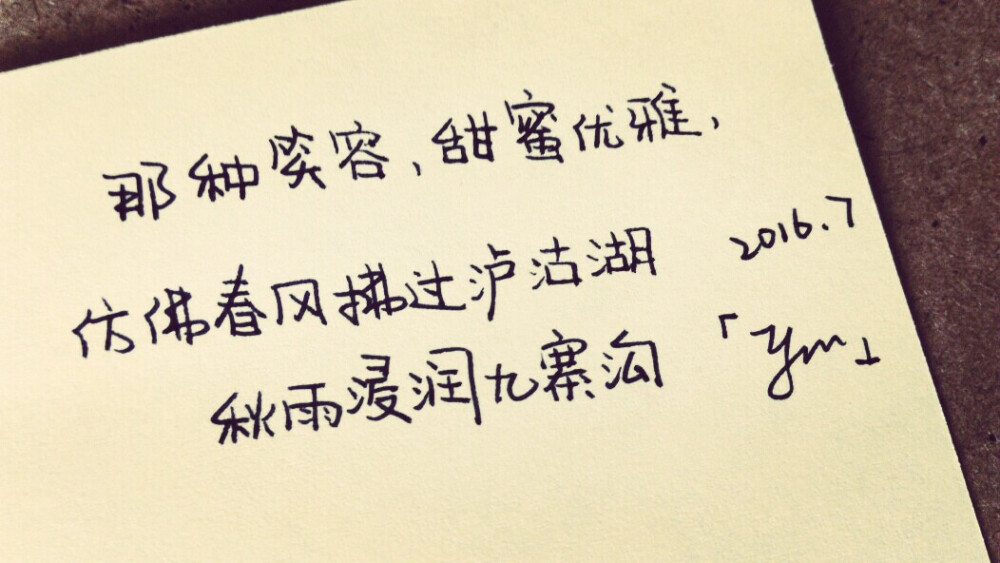 那种笑容,甜蜜优雅,
仿佛春风拂过泸沽湖
秋雨浸润九寨沟
2016.7
「ym」